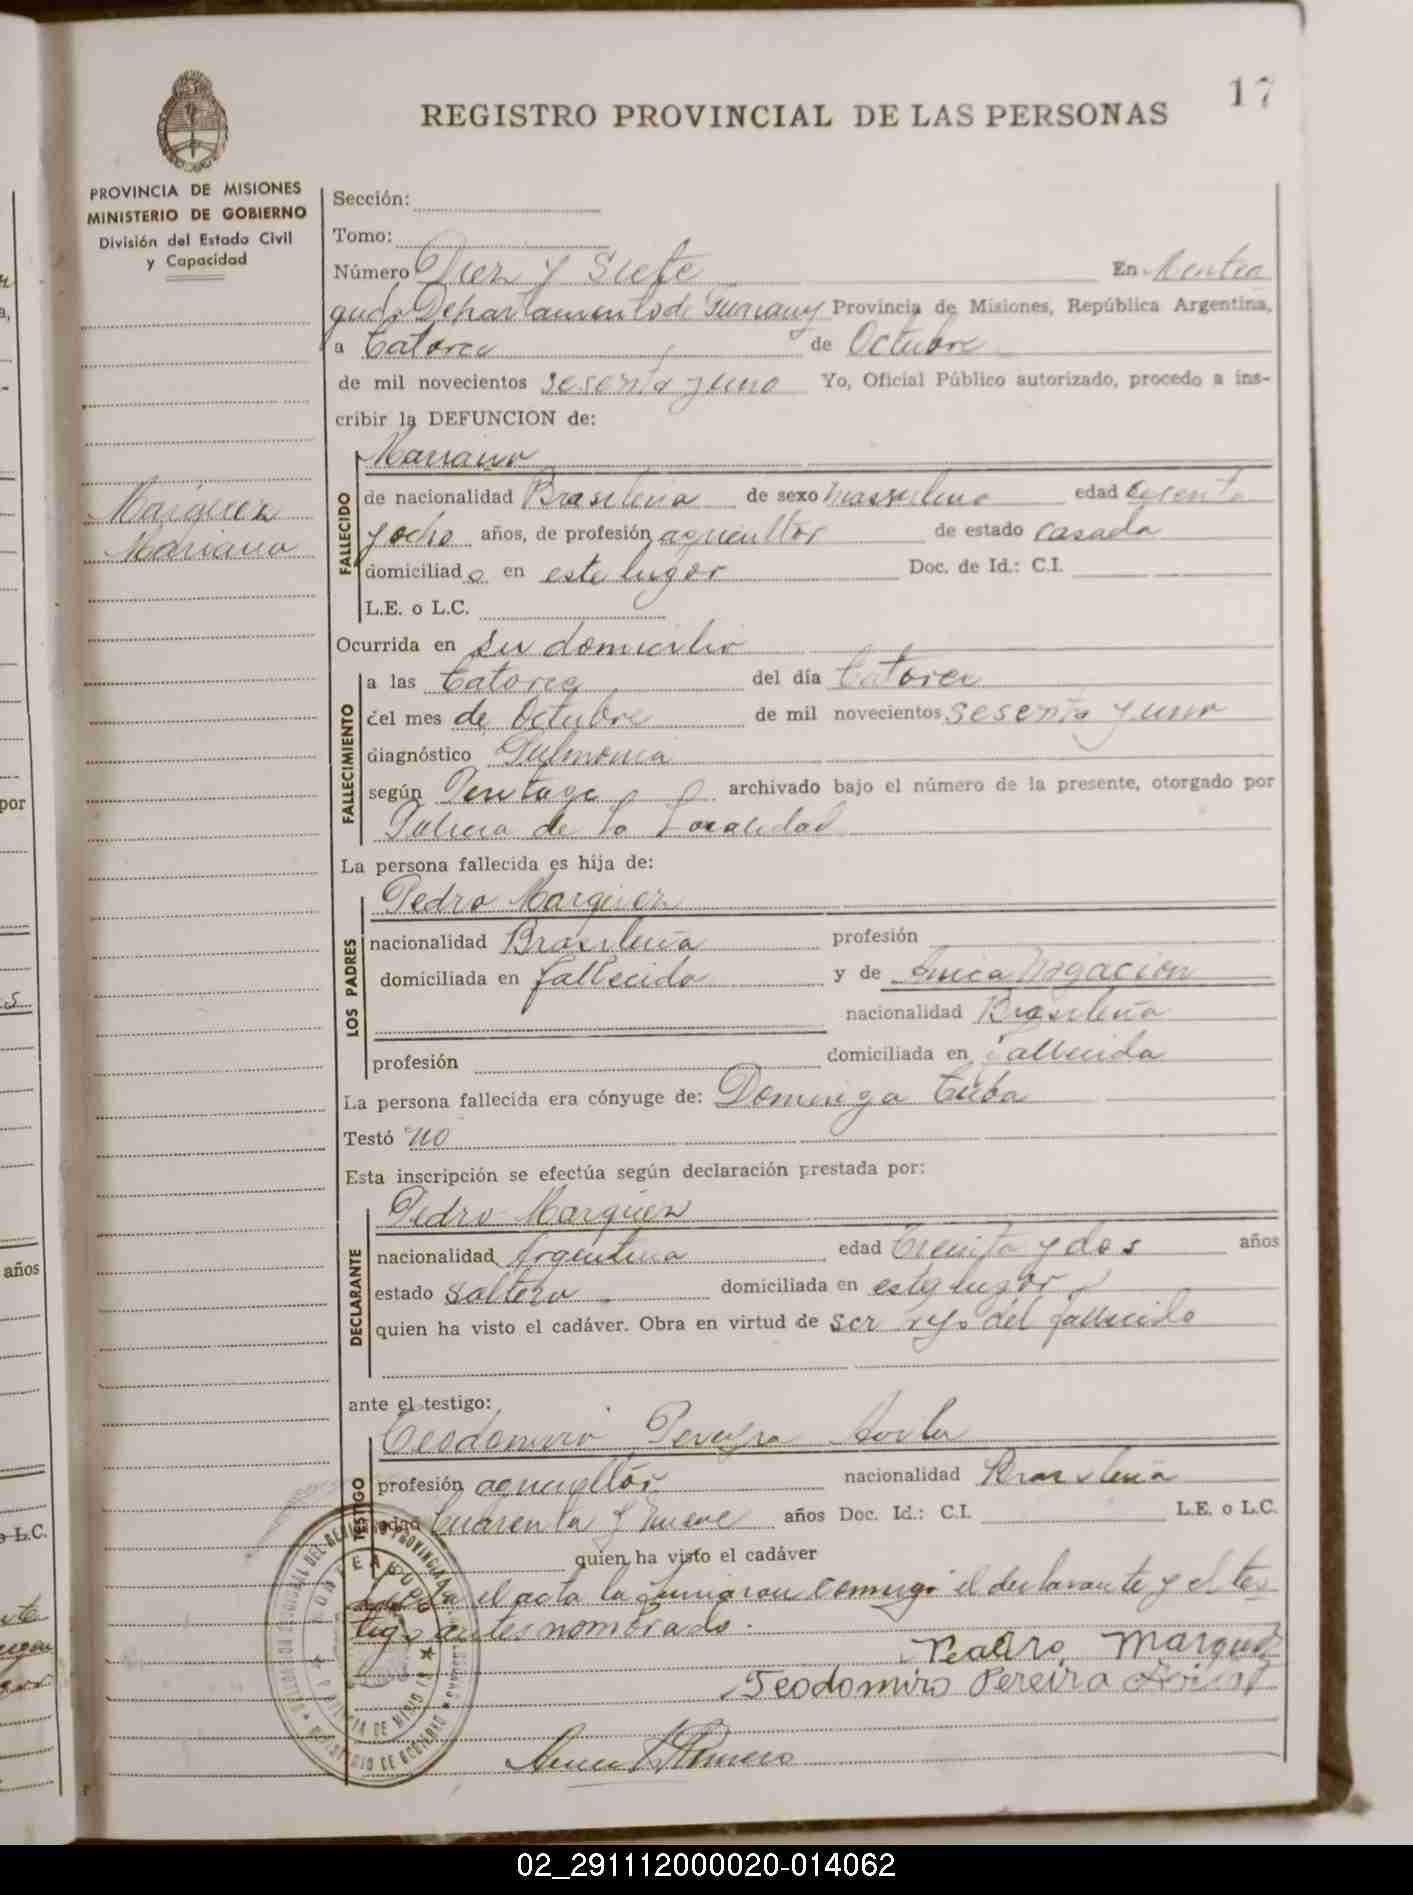 17
REGISTRO PROVINCIAL DE LAS PERSONAS
PROVINCIA DE MISIONES
MINISTERIO DE GOBIERNO
División del Estado Civil
y Capacidad
Sección:
Tomo:
Número Diez y Siete En Monteа
gudo Departamento de Guarany Provincia de Misiones, República Argentina,
a Catorce de Octubre
de mil novecientos sesenta y uno Yo, Oficial Público autorizado, procedo a ins-
cribir la DEFUNCION de:
Marquez
Mariano
FALLECIDO
Mariano
de nacionalidad Brasileña de sexo masculino edad
y ocho años, de profesión agricultor de estado casado
domiciliado en este lugar Doc. de Id.: C.I.
L.E. o L.C.
Ocurrida en su domicilio
FALLECIMIENTO
a las Catorce del día Catorce
del mes de Octubre de mil novecientos sesenta y uno
diagnóstico Pulmonia
según archivado bajo el número de la presente, otorgado por
Policia de la Localidad
La persona fallecida es hija de:
LOS PADRES
Pedro Marquez
nacionalidad Brasileña profesión
domiciliada en fallecido y de
nacionalidad Brasileña
profesión domiciliada en fallecida
La persona fallecida era cónyuge de: Dominga Cuba
Testó no
Esta inscripción se efectúa según declaración prestada por:
DECLARANTE
Pedro Marquez
nacionalidad Argentina edad treinta y dos años
estado soltero domiciliada en este lugar
quien ha visto el cadáver. Obra en virtud de ser del fallecido
ante el testigo:
TESTIGO
Teodomiro Pereyra
profesión agricultor nacionalidad Brasileña
edad Cuarenta y nueve años Doc. Id.: C.I. L.E. o L.C.
quien ha visto el cadáver
el acta la firmaron conmigo el declarante y el tes
tigo antes nombrado.
Pedro Marquez
Teodomiro Pereira
02_291112000020-014062